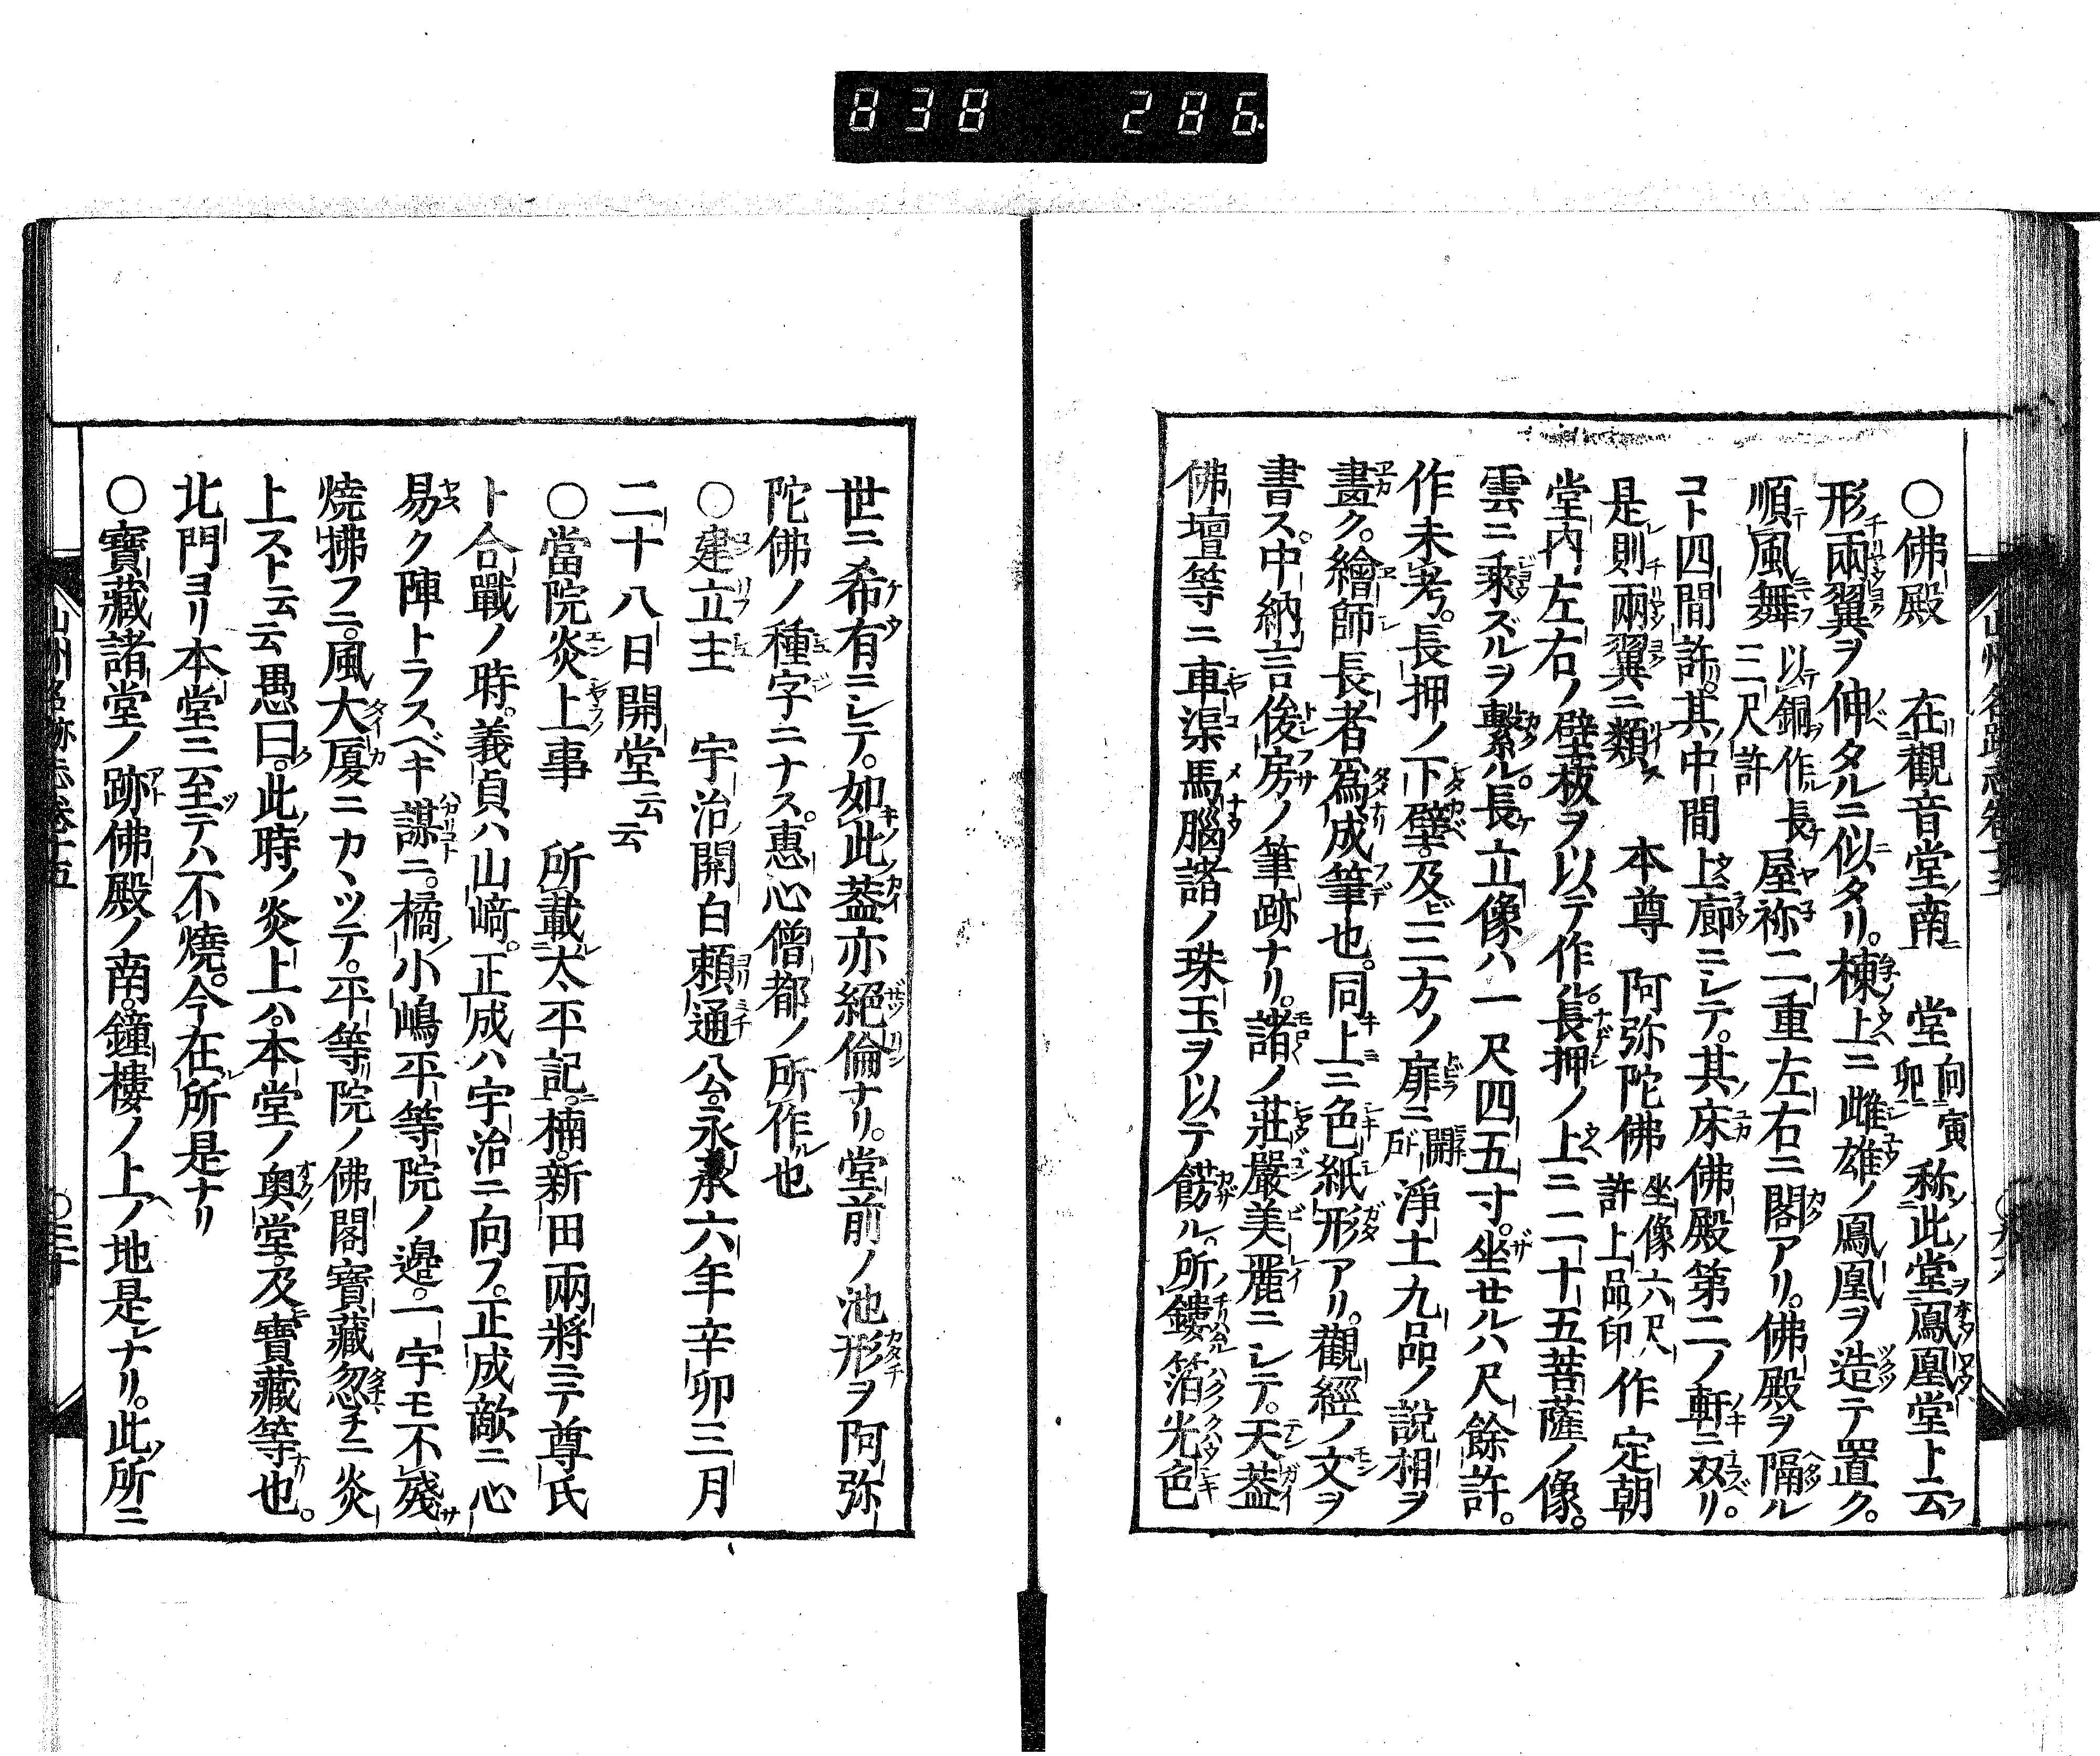 838 286
〇佛殿 在觀音堂南 堂向寅卯 称此堂鳳凰堂ト云
形兩翼ヲ伸タルニ似タリ。棟上ニ雌雄ノ鳳凰ヲ造テ置ク。
順風舞 以銅作長三尺許 屋祢二重左右ニ閣アリ。佛殿ヲ隔ル
コト四間許。其中間上廊ニシテ。其床佛殿第二ノ軒ニ双リ。
是則兩翼ニ類ス 本尊 阿弥陀佛 坐像六尺許上品印 作定朝
堂内左右ノ壁板ヲ以テ作ル。長押ノ上ニ二十五菩薩ノ像。
雲ニ乘ズルヲ繋ル。長立像ハ一尺四五寸。坐セルハ尺餘許。
作未考。長押ノ下壁。及ビ三方ノ扉ニ 開戸 淨土九品ノ説相ヲ
畫ク。繪師長者爲成筆也。同上ニ色紙形アリ。觀經ノ文ヲ
書ス。中納言俊房ノ筆跡ナリ。諸ノ莊嚴美麗ニシテ。天蓋
佛壇等ニ車渠馬腦諸ノ珠玉ヲ以テ餝ル。所鏤箔光色
世ニ希有ニシテ。如此蓋亦絕倫ナリ。堂前ノ池形ヲ阿弥
陀佛ノ種字ニナス。惠心僧都ノ所作也
〇建立主 宇治關白頼通公。永承六年辛卯三月
二十八日開堂云云
〇當院炎上事 所載太平記。楠。新田兩將ニテ尊氏
ト合戰ノ時。義貞ハ山﨑。正成ハ宇治ニ向フ。正成敵ニ心
易ク陣トラスベキ謀ニ。橘小嶋平等院ノ邊。一宇モ不殘
燒拂フニ。風大厦ニカヽツテ。平等院ノ佛閣寳藏忽チニ炎
上スト云云愚曰。此時ノ炎上ハ。本堂ノ奥堂。及寳藏等也。
北門ヨリ本堂ニ至テハ不燒。今在所是ナリ
〇寳藏諸堂ノ跡佛殿ノ南。鐘樓ノ上ノ地是レナリ。此所ニ
山州名跡志卷十五